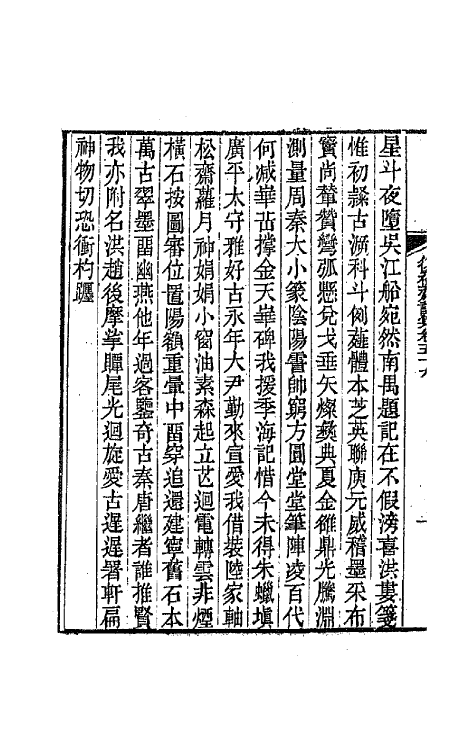 星斗夜墮吳江船宛然南禺題記在不假滂喜洪婁箋
惟初隸古溯科斗倒薤體本芝英聯庾元威稽墨采布
竇尚輦贊彎弧懸兌戈垂矢燦彝典夏金雒鼎光騰淵
測量周秦大小篆陰陽霤帥窮方圓堂堂筆陣凌百代
何減華嵒撐金天華碑我援季海記惜今未得朱蠟塡
廣平太守雅好古永年大尹勤來宣愛我借裝陸家軸
松齋蘿月神娟娟小窗油素森起立芒迴電轉雲非煙
橫石按圖審位置陽額重暈中畱穿追還建寧舊石本
萬古翠墨畱幽燕他年過客鑒奇古秦唐繼者誰推賢
我亦附名洪趙後摩挲贉尾光迴旋愛古遲遲署軒扁
神物切恐衝杓躔